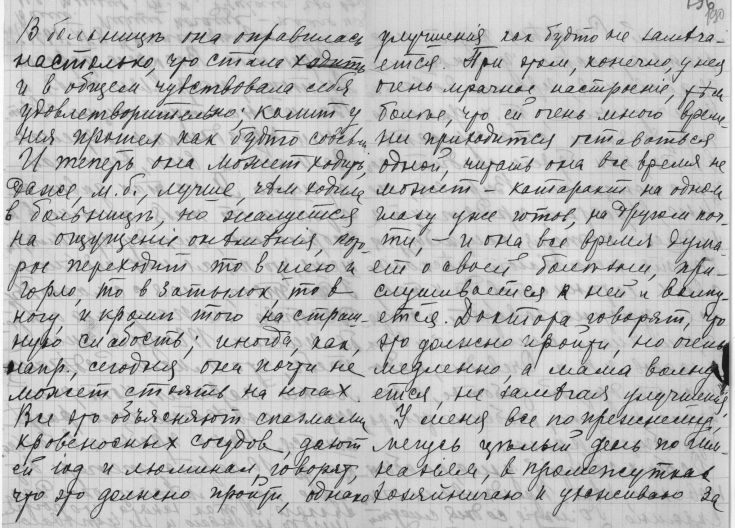 В больницѣ она оправилась
настолько, что стала ходить
и в общем чувствовала себя
удовлетворительно; колит у
нея прошел как будто совсем.
И теперь она может ходить
даже, м.б., лучше, чѣм ходила
в больницѣ, но жалуется
на ощущение онѣмѣнія, кото-
рое переходит то в шею и
горло, то в затылок, то в
ногу, и кромѣ того на страш-
ную слабость; иногда, как,
напр., сегодня она почти не
может стоять на ногах.
Все это объясняют спазмами
кровеносных сосудов, дают
ей iод и люминал, говорят,
что это должно пройти, однако
улучшенія как будто не замѣча-
ется. При этом, конечно, у нея
очень мрачное настроеніе, тѣм
болѣе, что ей очень много време-
ни приходится оставаться
одной, читать она все время не
может – катаракт на одном
глазу уже готов, на другом поч-
ти, – и она все время дума-
ет о своей болѣзни, при-
слушивается к ней и волну-
ется. Доктора говорят, что
это должно пройти, но очень
медленно, а мама волну-
ется, не замѣчая улучшенія.
У меня все по прежнему,
мечусь цѣлый день по гим-
назіям, в промежутках
хозяйничаю и ухаживаю за